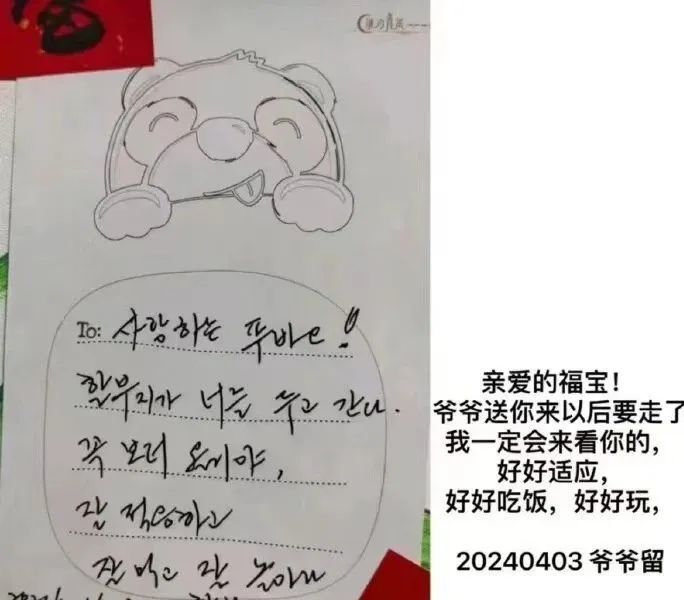 To: 사랑하는 푸바오!
할부지가 너를 두고 간다.
꼭 보러
잘 적응하고
잘 먹고 잘 놀아라
亲爱的福宝!
爷爷送你来以后要走了
我一定会来看你的,
好好适应,
好好吃饭，好好玩,
20240403 爷爷留